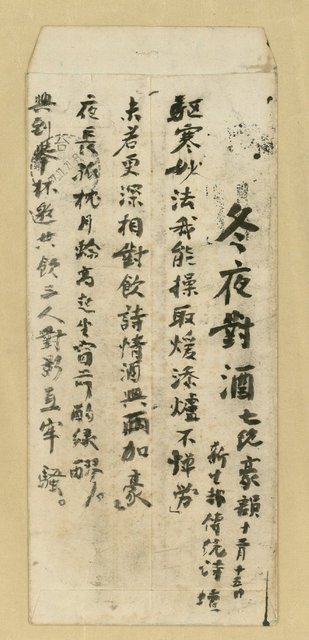 冬夜對酒 七絕豪韻 十二月十五日
新生報傳統詩壇
驅寒妙法我能操取煖添爐不憚勞」
未若更深相對飲詩情酒興兩加豪」
夜長孤枕月輪高起坐窗前酌綠醪」。
興到舉杯邀共飲三人對影互牢騷。